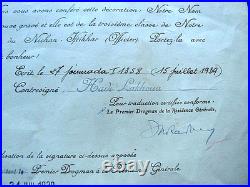 vous avons conféré cette décoration : Notre Nom
gravé et elle est de la troisième classe de Notre
du Nichan Iftikhar (Officier). Portez-la avec
bonheur!
Ecrit le 27 joumada I 1358 (15 juillet 1939)
Contresigné : Hadi Lakhoua
Pour traduction certifiée conforme :
Le Premier Drogman de la Résidence Générale,
lisation de la signature ci-dessus apposée
Premier Drogman Résidence Générale